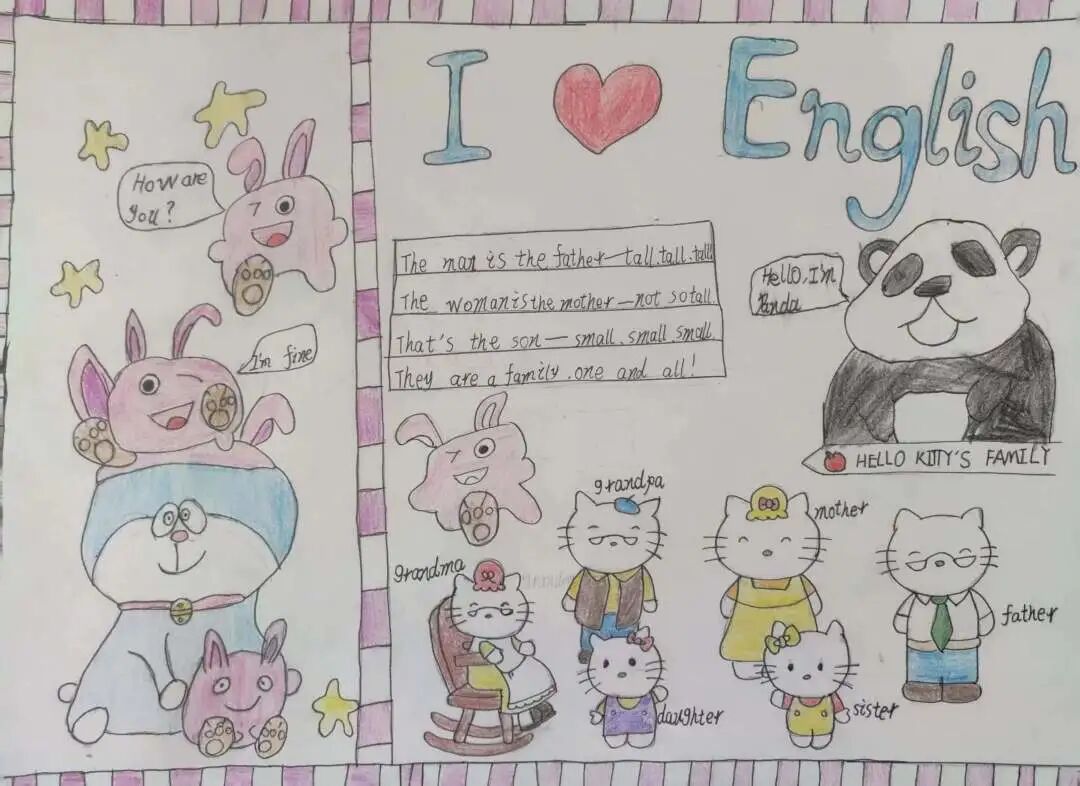 I English
How are
you?
I'm fine
The man is the father—tall.tall.tall
The woman is the mother—not so tall.
That's the son—small.small.small
They are a family.one and all!
Hello,I'm
Panda
HELLO KITTY'S FAMILY
grandpa
mother
grandma
father
daughter
sister